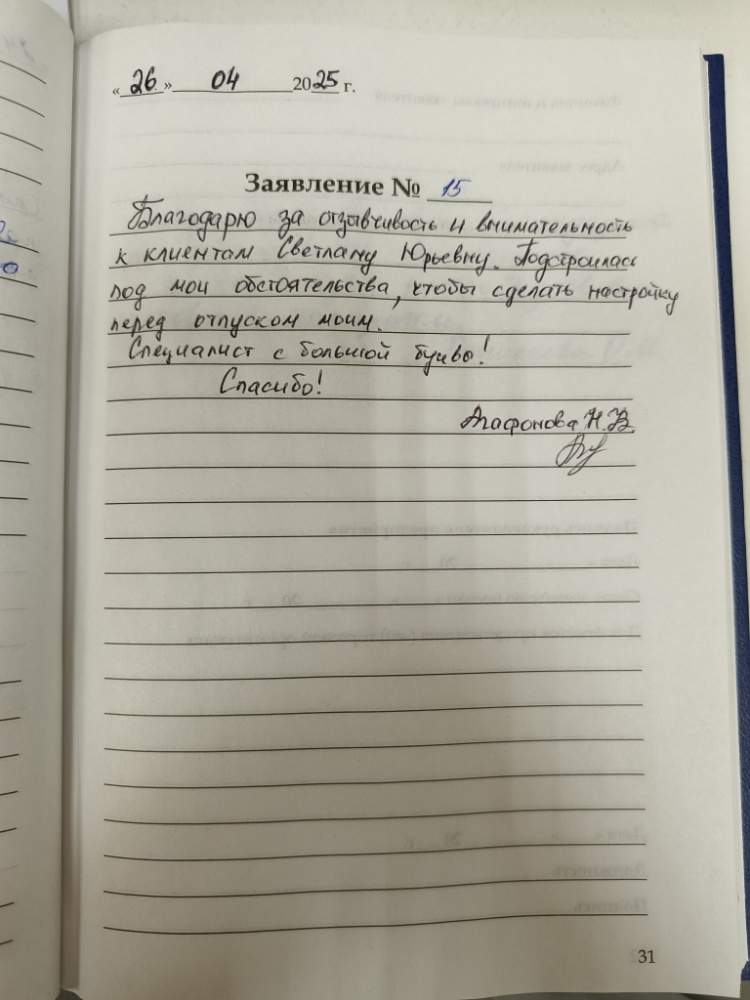 «26» 04 2025 г.
Заявление № 15
Благодарю за отзывчивость и внимательность
к клиентам Светлану Юрьевну. Подстроилась
под мои обстоятельства, чтобы сделать настройку
перед отпуском моим.
Специалист с большой буквы!
Спасибо!
Агафонова Н.В.
31